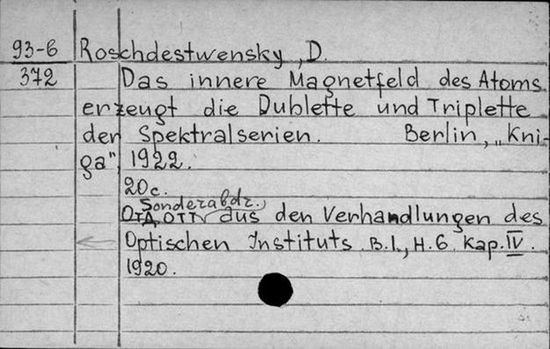 93-6 Roschdestwensky, D.
372 Das innere Magnetfeld des Atoms
erzeugt die Dublette und Triplette
der Spektralserien. Berlin, „Kni-
ga", 1922.
20 c.
Sonderabdr.
Отд. отт. aus den Verhandlungen des
Optischen Instituts B.I., H.6. Kap. IV.
1920.